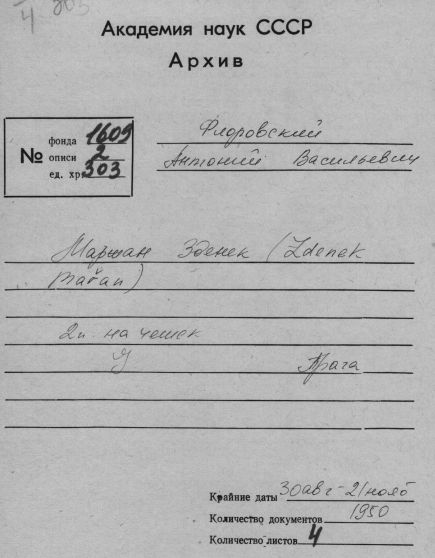 Академия наук СССР
Архив
№
фонда 1609
описи 2
ед. хр. 303
Флоровский
Антоний Васильевич
Маржан Зденек (Zdenek
Mařan)
2п. на чешск
Прага
Крайние даты 30авг-21нояб
1950
Количество документов
Количество листов 4